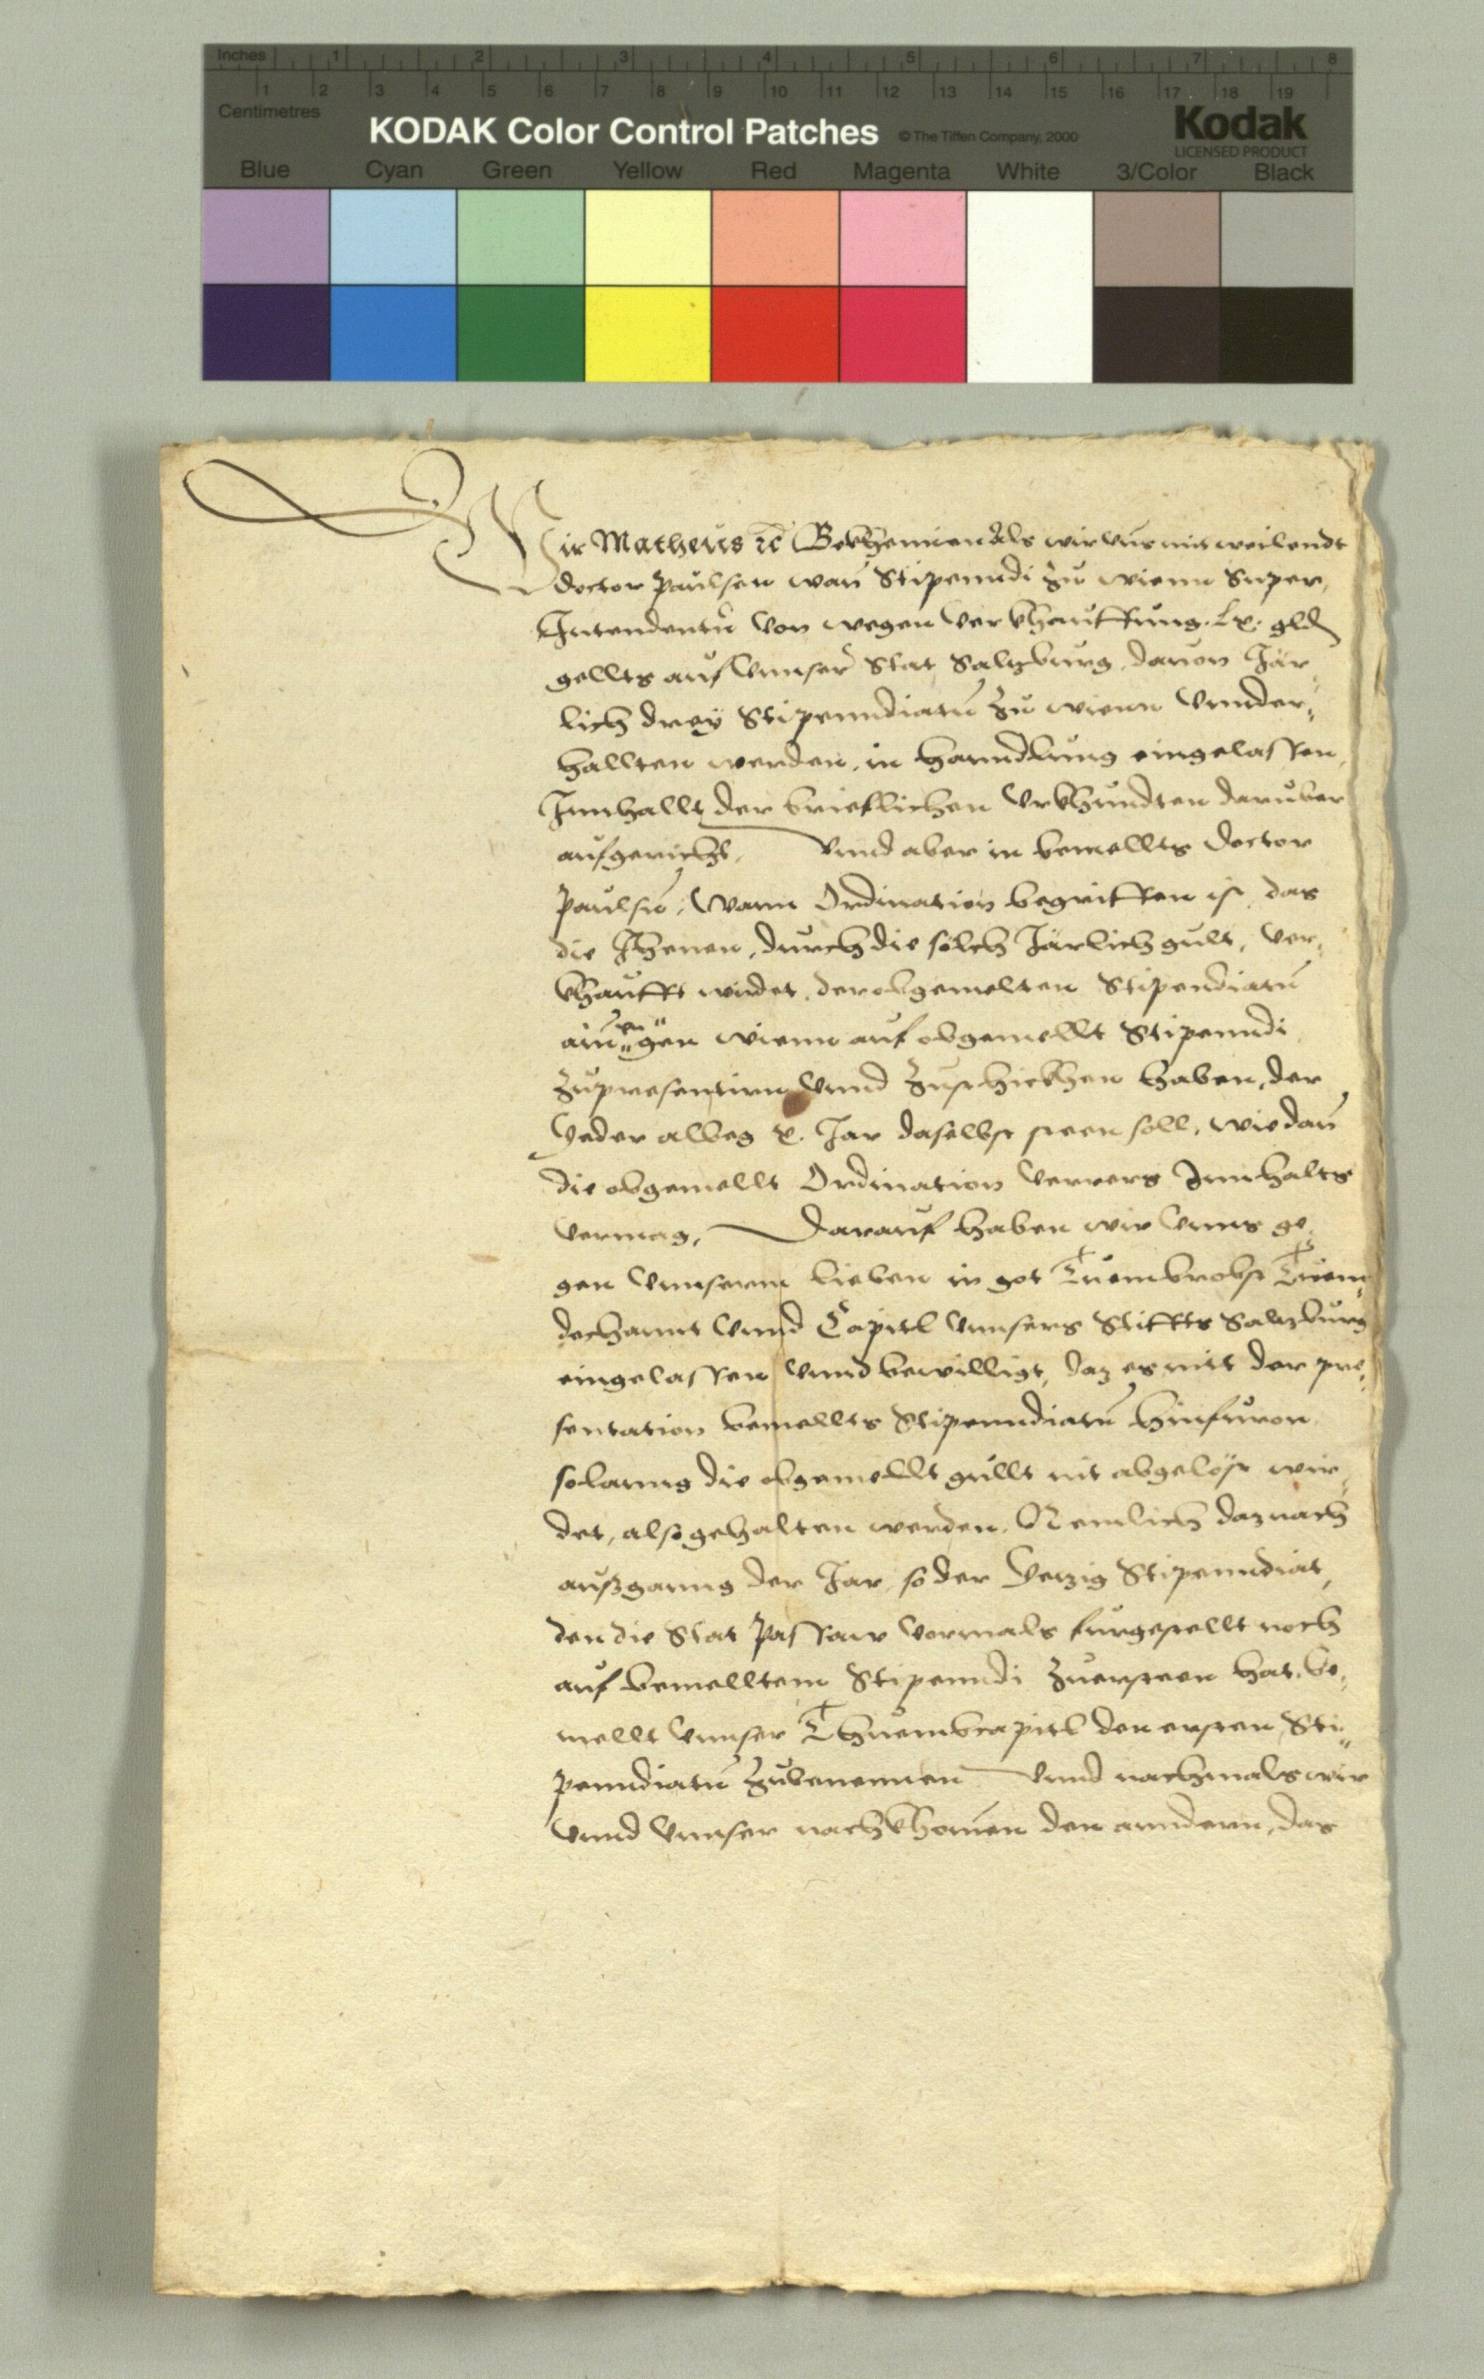 Inches 1 2 3 4 5 6 7 8
1 2 3 4 5 6 7 8 9 10 11 12 13 14 15 16 17 18 19
Centimetres
KODAK Color Control Patches © The Tiffen Company, 2000 Kodak
LICENSED PRODUCT
Blue Cyan Green Yellow Red Magenta White 3/Color Black
Wir Matheus ꝛc Bekhennen Als wir vns mit weilendt
doctor Paulsen wan Stipenndi zu wienn Super,
Intendentn̄ von wegen verkhauffung .Lx. gld
gellts auf vnnser Stat Saltzburg, dauon Jär¬
lich drey Stipenndiatn̄ zu wienn vnnder¬
hallten werden, in hanndlung eingelassen,
Innhallt der brieflichen vrkhundten daruber
aufgericht, Vnnd aber in bemellts doctor
Paulsn̄, Wann Ordination begriffen ist, das
die Jhenen, durch die solch Järlich gult, ver¬
khaufft wirdet, der obgemelten Stipendiatn̄
ain̄ gen wienn auf obgemellt Stipenndi
zupresentirn vnnd zuschickhen haben, der
Yeder albeg x. Jar daselbst steen soll, wie dan̄
die obgemellt Ordination verrers Innhalts
vermag, Darauf haben wir vnns ge¬
gen vnnserm lieben in got Tuembrobst Tuem¬
dechannt vnnd Capitl vnnsers Stiffts Saltzburg
eingelassen vnnd bewilligt, daz es mit der pre¬
sentation bemellts Stipenndiatn̄ hinfuron
solanng die obgemellt gullt nit abgelöst wir¬
det, also gehalten werden, Nemlich daz nach
außganng der Jar, so der Yetzig Stipenndiat,
den die Stat Passaw vormals furgestellt noch
auf bemelltem Stipenndi zuersteen hat, be¬
mellt vnnser Thuembcapitl den ersten Sti¬
penndiatn̄ zubenennen Vnnd nachmals wir
vnnd vnnser nachkhomen den anndern, das